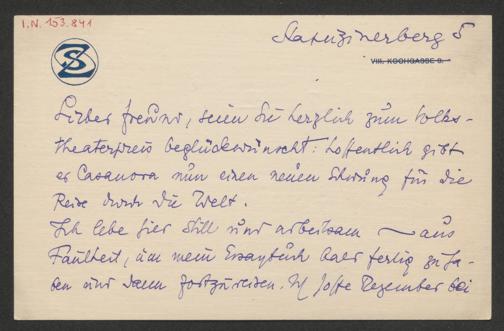 I.N. 153.841
SZ
Kapuzinerberg 5
VIII. KOCHGASSE 8.
Lieber Freund, seien Sie herzlich zum Volks-
theaterpreis beglückwünscht: hoffentlich gibt
er Casanova nun einen neuen Schwung für die
Reise durch die Welt.
Ich lebe hier still und arbeitsam – aus
Faulheit, um mein Essaybuch bald fertig zu ha-
ben und dann fortzureisen. Ich hoffe Dezember bei